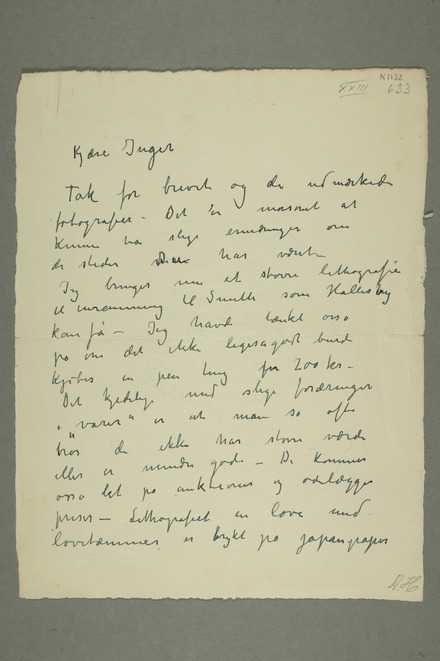 N1132
XXIII 633
Kjære Inger
Tak for brevet og de udmærkede
fotografier – Det er morsomt at
kunne ha slige erindringer om
de steder man har været
Jeg bringer nu et større lithografie
til inramning til Smith som Halles
kan få – Jeg havde tænkt også
på om det ikke ligeså godt burde
kjøbes en pen ting for 200 kr –
Det kjedelige med slige foræringer
i "varer" er at man så ofte
tror de ikke har større værdi
eller er mindre gode – De kommer
også let på auktioner og ødelægger
priser – Lithografiet en løve med
løvetæmmer er trykt på japanpapir
N. H